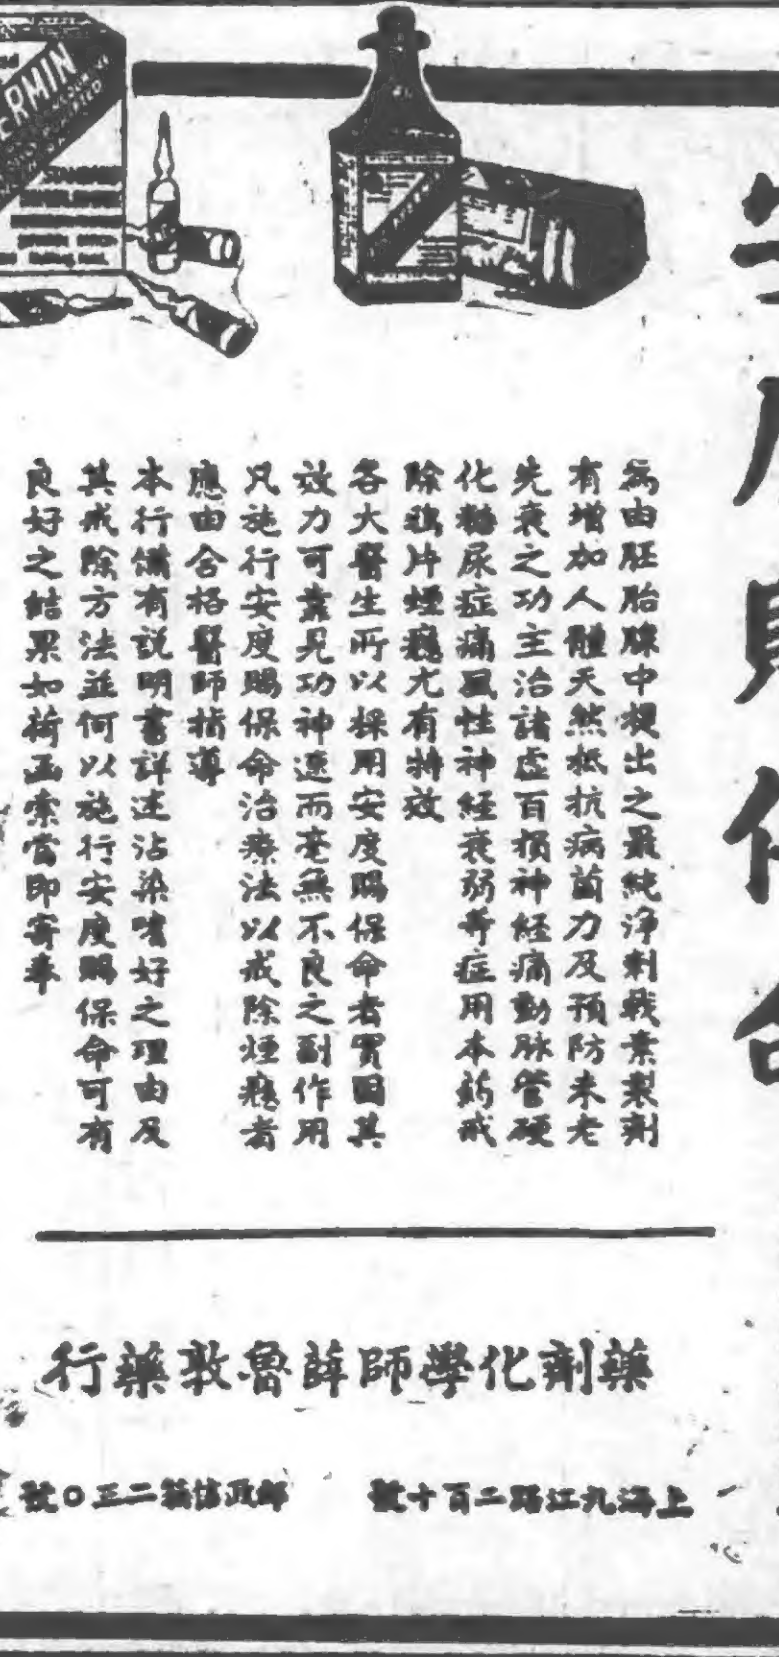 為由胚胎腺中提出之最純淨刺戟素製劑
有增加人體天然抵抗病菌力及預防未老
先衰之功主治諸虛百損神經痛動脉管硬
化糖尿症痛風性神經衰弱等症用本藥戒
除鴉片煙癮尤有特效
各大醫生所以採用安度賜保命者實因其
效力可靠見功神速而毫無不良之副作用
凡施行安度賜保命治療法以戒除煙癮者
應由合格醫師指導
本行備有說明書詳述沾染嗜好之理由及
其戒除方法並何以施行安度賜保命可有
良好之結果如荷函索當即寄奉
藥劑化學師薛魯敦藥行
上海九江路二百十號
郵政信箱二三〇號
ERMIN